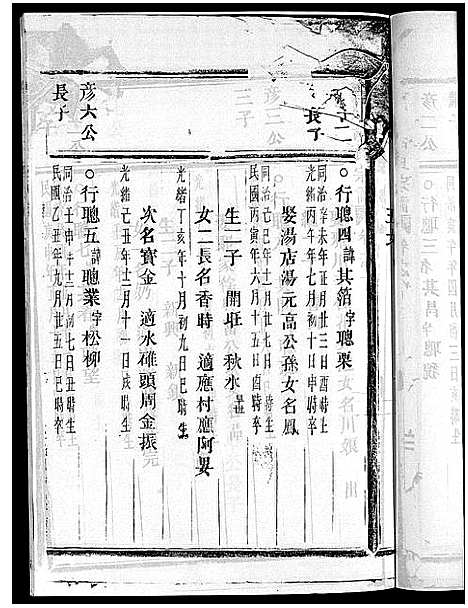 長子
○行聰四諱其箔字聰栗
同治辛未年正月廿三日酉時生
光緒丙午年七月初十日申時卒
娶湯店湯元高公孫女名鳳
同治己巳年十二月廿二日酉時生
民國丙寅年六月十五日酉時卒
生二子 開旺 公秋水
女二長名香時 適應村應阿
光緒丁亥年十月初九日巳時生
次名寶金 適水碓頭周金振
光緒己丑年十二月十一日戌時生
彦六公
長子
○行聰五諱聰業字松柳
同治壬申年十二月初七日丑時生
民國乙丑年九月廿五日巳時卒
彦二公
○行聰三名其昌字聰